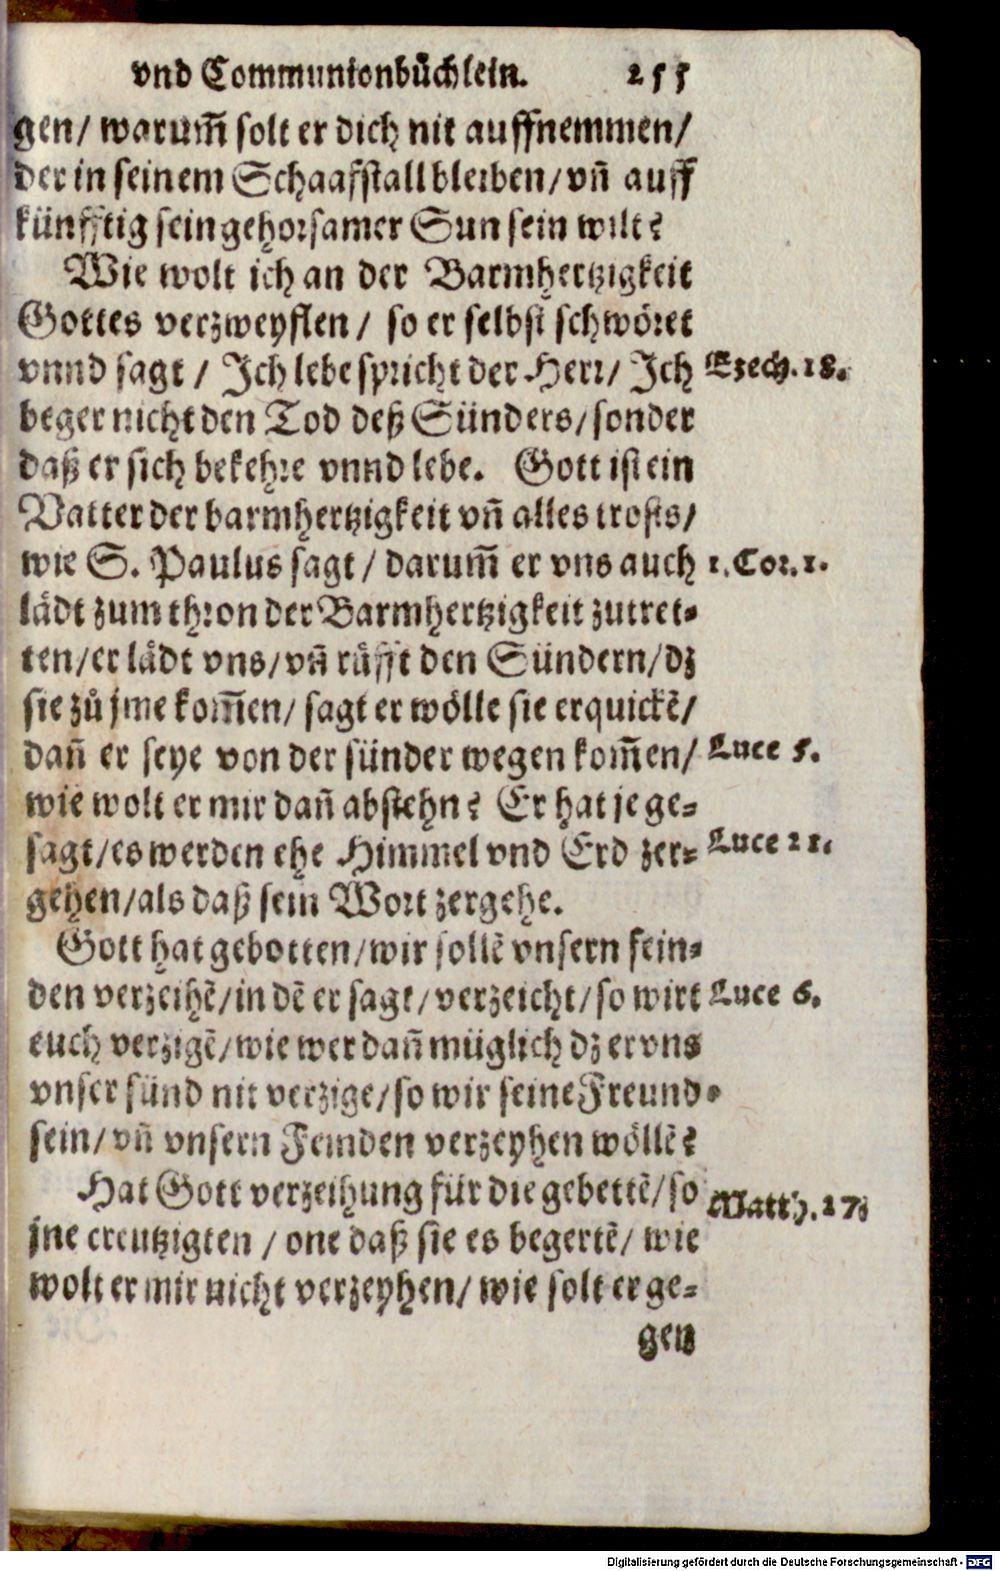 vnd Communionbůchlein. 255
gen/ warum̃ solt er dich nit auffnemmen/
der in seinem Schaafstall bleiben/ vñ auff
künfftig sein gehorsamer Sun sein wilt?
Wie wolt ich an der Barmhertzigkeit
Gottes verzweyflen/ so er selbst schwöret
vnnd sagt/ Ich lebe spricht der Herr/ Ich Ezech. 18.
beger nicht den Tod deß Sünders/ sonder
daß er sich bekehre vnnd lebe. Gott ist ein
Vatter der barmhertzigkeit vñ alles trosts/
wie S. Paulus sagt/ darum̃ er vns auch 1. Cor. 1.
lådt zum thron der Barmhertzigkeit zutret-
ten/ er lådt vns/ vñ růfft den Sündern/ dz
sie zů jme kom̃en/ sagt er wölle sie erquickẽ/
dañ er seye von der sünder wegen kom̃en/ Luce 5.
wie wolt er mir dañ abstehn? Er hat je ge-
sagt/ es werden ehe Himmel vnd Erd zer- Luce 21.
gehen/ als daß sein Wort zergehe.
Gott hat gebotten/ wir sollẽ vnsern fein-
den verzeihẽ/ in dẽ er sagt/ verzeicht/ so wirt Luce 6.
euch verzigẽ/ wie wer dañ müglich dz er vns
vnser sünd nit verzige/ so wir seine Freund
sein/ vñ vnsern Feinden verzeyhen wöllẽ?
Hat Gott verzeihung für die gebettẽ/ so Matth. 27.
jne creutzigten / one daß sie es begertẽ/ wie
wolt er mir nicht verzeyhen/ wie solt er ge-
gen
Digitalisierung gefördert durch die Deutsche Forschungsgemeinschaft - DFG